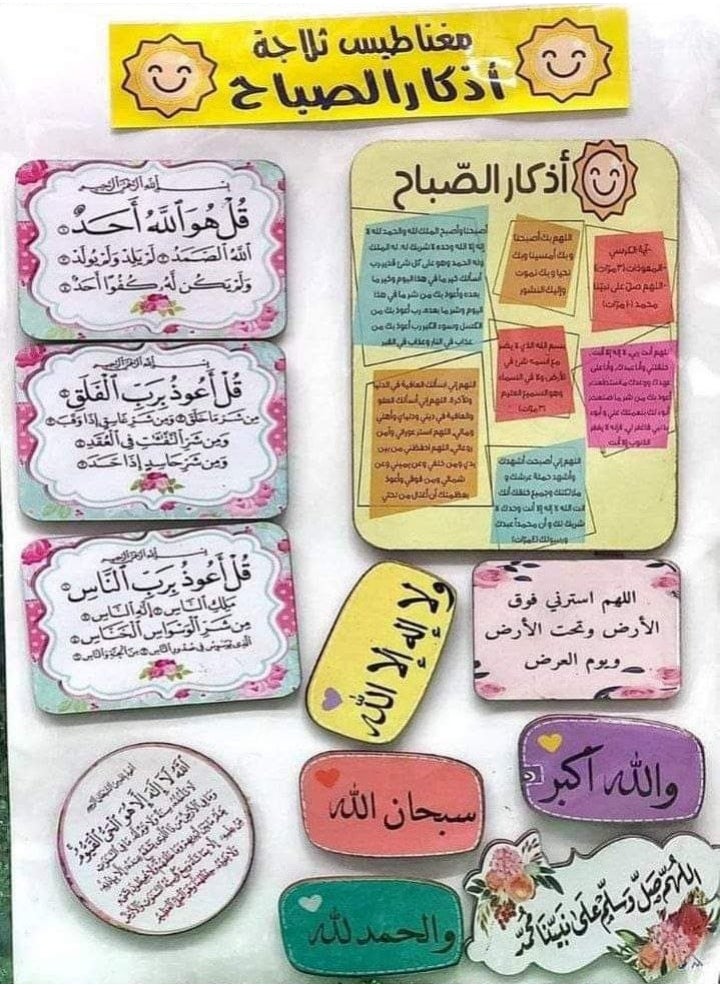 مغناطيس ثلاجة
أذكار الصباح
قُلْ هُوَ ٱللَّهُ أَحَدٌ ①
ٱللَّهُ ٱلصَّمَدُ ② لَمْ يَلِدْ وَلَمْ يُولَدْ ③
وَلَمْ يَكُن لَّهُۥ كُفُوًا أَحَدٌۢ ④
قُلْ أَعُوذُ بِرَبِّ ٱلْفَلَقِ ①
مِن شَرِّ مَا خَلَقَ ② وَمِن شَرِّ غَاسِقٍ إِذَا وَقَبَ ③
وَمِن شَرِّ ٱلنَّفَّٰثَٰتِ فِى ٱلْعُقَدِ ④
وَمِن شَرِّ حَاسِدٍ إِذَا حَسَدَ ⑤
قُلْ أَعُوذُ بِرَبِّ ٱلنَّاسِ ①
مَلِكِ ٱلنَّاسِ ② إِلَٰهِ ٱلنَّاسِ ③
مِن شَرِّ ٱلْوَسْوَاسِ ٱلْخَنَّاسِ ④
أذكار الصّباح
آية الكرسي
-المعوذات (٣ مرات)
-اللهم صل على نبينا
محمد (١٠ مرات)
اللهم بك أصبحنا
وبك أمسينا وبك
نحيا وبك نموت
وإليك النشور
أصبحنا وأصبح الملك لله والحمد لله لا
إله إلا الله وحده لا شريك له، له الملك
وله الحمد وهو على كل شئ قدير رب
أسألك خير ما في هذا اليوم وخير ما
بعده وأعوذ بك من شر ما في هذا
اليوم وشر ما بعده، رب أعوذ بك من
الكسل وسوء الكبر رب أعوذ بك من
عذاب في النار وعذاب في القبر
بسم الله الذي لا يضر
مع اسمه شئ في
الأرض ولا في السماء
وهو السميع العليم
(٣ مرات)
اللهم أنت ربي لا إله إلا أنت،
خلقتني وأنا عبدك، وأنا على
عهدك ووعدك ما استطعت،
أعوذ بك من شر ما صنعت،
أبوء لك بنعمتك علي، و أبوء
بذنبي فاغفر لي، فإنه لا يغفر
الذنوب إلا أنت
اللهم إني أسألك العافية في الدنيا
والآخرة، اللهم إني أسألك العفو
والعافية في ديني ودنياي وأهلي
ومالي، اللهم استر عوراتي وآمن
روعاتي، اللهم احفظني من بين
يدي ومن خلفي وعن يميني وعن
شمالي ومن فوقي وأعوذ
بعظمتك أن أغتال من تحتي
اللهم إني أصبحت أشهدك
وأشهد حملة عرشك و
ملائكتك وجميع خلقك أنك
أنت الله لا إله إلا أنت وحدك لا
شريك لك و أن محمداً عبدك
ورسولك (٤ مرات)
ولا إله إلا الله
اللهم استرني فوق
الأرض وتحت الأرض
ويوم العرض
والله أكبر
سبحان الله
والحمد لله
اللَّهُمَّ صَلِّ وَسَلِّم عَلَىٰ نَبِيِّنَا مُحَمَّد
ٱللَّهُ لَا إِلَٰهَ إِلَّا هُوَ ٱلْحَىُّ ٱلْقَيُّومُ